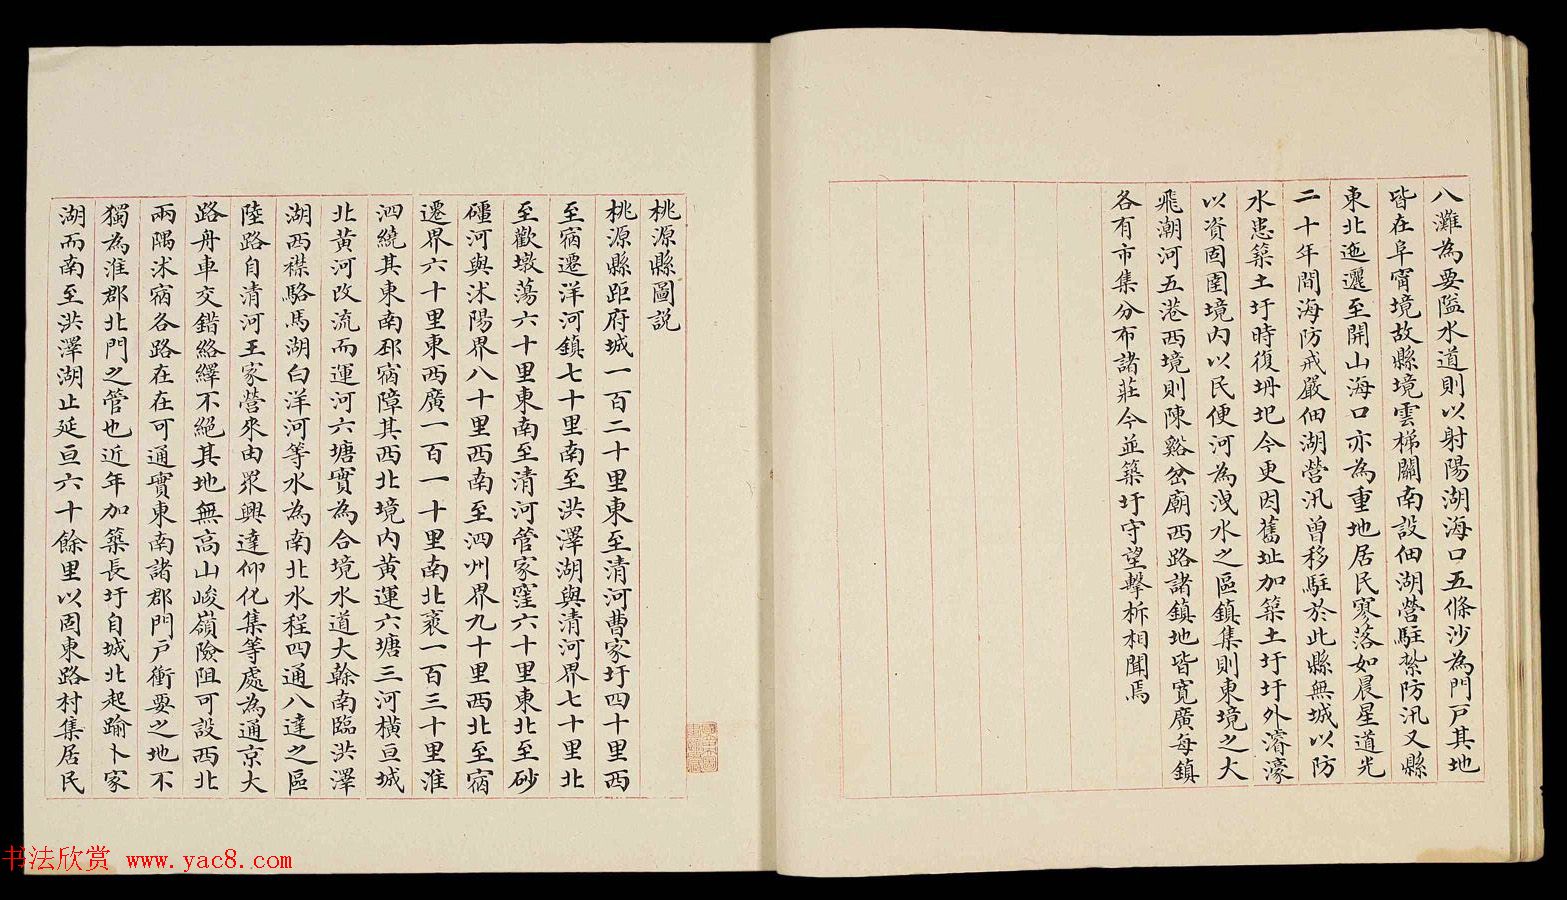 八灘為要隘水道則以射陽湖海口五條沙為門戸其地
皆在阜甯境故縣境雲梯關南設佃湖營駐紮防汛又縣
東北迤邐至開山海口亦為重地居民寥落如晨星道光
二十年間海防戒嚴佃湖營汛曾移駐於此縣無城以防
水患築土圩時復坍圮今更因舊址加築土圩圩外濬濠
以資固圉境内以民便河為洩水之區鎮集則東境之大
飛潮河五港西境則陳谿岔廟西路諸鎮地皆寬廣每鎮
各有市集分布諸莊今並築圩守望擊柝相聞焉
桃源縣圖説
桃源縣距府城一百二十里東至清河曹家圩四十里西
至宿遷洋河鎮七十里南至洪澤湖與清河界七十里北
至歡墩蕩六十里東南至清河管家窪六十里東北至砂
礓河與沭陽界八十里西南至泗州界九十里西北至宿
遷界六十里東西廣一百一十里南北袤一百三十里淮
泗繞其東南邳宿障其西北境内黄運六塘三河橫亘城
北黃河改流而運河六塘實為合境水道大榦南臨洪澤
湖西襟駱馬湖白洋河等水為南北水程四通八達之區
陸路自清河王家營來由眾興達仰化集等處為通京大
路舟車交錯絡繹不絕其地無高山峻嶺險阻可設西北
兩隅沭宿各路在在可通實東南諸郡門戸衝要之地不
獨為淮郡北門之管也近年加築長圩自城北起踰卜家
湖而南至洪澤湖止延亘六十餘里以固東路村集居民
书法欣赏 www.yac8.com